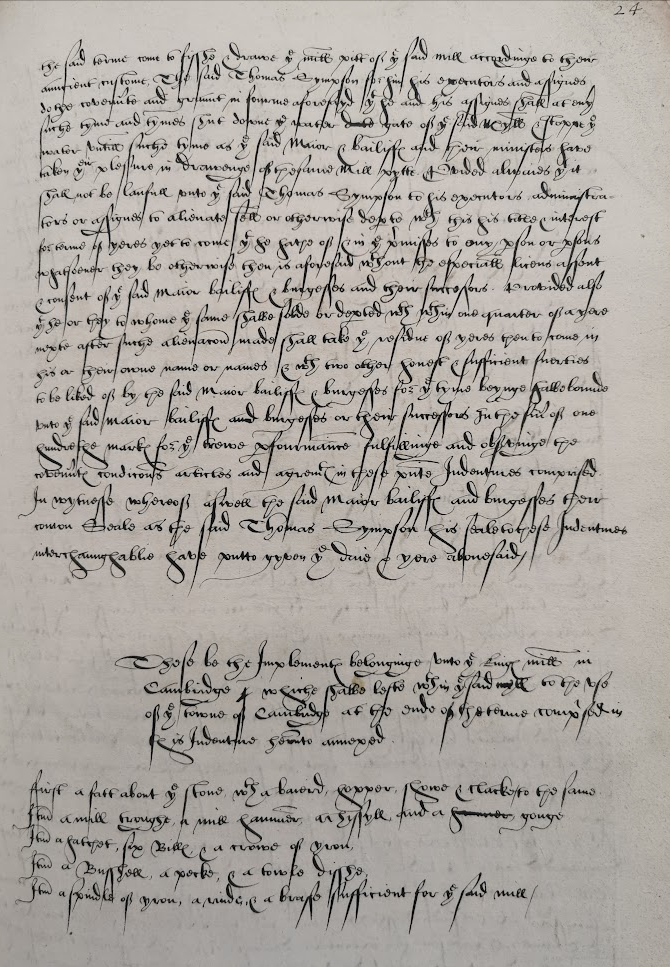 24
the said terme come to fisshe & drawe yͤ mill pitt off yͤ said mill accordinge to their
auncient custome. The said Thomas Sympson for him his executors and assignes
dothe covenˀnte and graunt in fourme aforesayd yͭ he and his assignes shall at eny
suche tyme and tymes shut downe yͤ water gate off yͤ said Mylle & stoppe yͤ
water untill suche tyme as yͤ said Maior & bailiffƺ and their ministers have
taken yʳ plesure in drawenge off thesame Mill pytte Pˀvided alwaies yͭ it
shall not be laufull vnto yͤ said Thomas Sympson to his executors administra-
tors or assignes to alienate sell or otherwise depte wͭʰ this his title & interest
for terme off yeres yet to come yͭ he hathe off & in yͤ pˀmises to any pˀson or pˀsons
whatsoever they be otherwise then is aforesaid wͭʰout the especiall licens assent
& consent off yͤ said Maior bailiffƺ & burgesses and their successors. Provided also
yͭ he or they to whome yͤ same shalbe solde or depted wͭʰ wͭʰin one quarter off a yere
nexte after suche alienacon made shall take yͤ residue off yeres then to come in
his or their owne name or names & wͭʰ two other honest & sufficient suerties
to be liked off by the said Maior bailiffƺ & burgesses for yͤ tyme beynge shalbe bounde
vnto yͤ said Maior bailiffƺ and burgesses or their successors In the sūm off one
hundrethe markƺ for yͤ trewe pˀfourmance fulfillinge and obsˀvinge the
covenˀntƺ condicons articles and agremˀtƺ in these pˀnte Indentures comprised
In wytnesse whereoff aswell the said Maior bailiffƺ and burgesses their
comon Seale as the said Thomas Sympson his seale to these Indentures
interchaunghablie have putto gyven yͤ daie & yere abovesaid /
These be the Implementƺ belonginge vnto yͤ kingƺ mill in
Cambridge & whiche shalbe lefte wͭʰin yͤ said mill to the vse
off yͤ towne off Cambridge at the ende off the terme compˀsed in
this Indenture herˀvnto annexed
ffirst a fatt about yͤ stone, wͭʰ a hopper, showe & clacke to the same
Itm̄ a mill troughe, a mill hammer, a chysyll, and a gouge
Itm̄ a hatchet, six Billƺ & a crowe off yron,
Itm̄ a Busshell, a pecke, & a towle disshe,
Itm̄ a spindle off yron, a rinde, & a brasse sufficient for yͤ said mill /